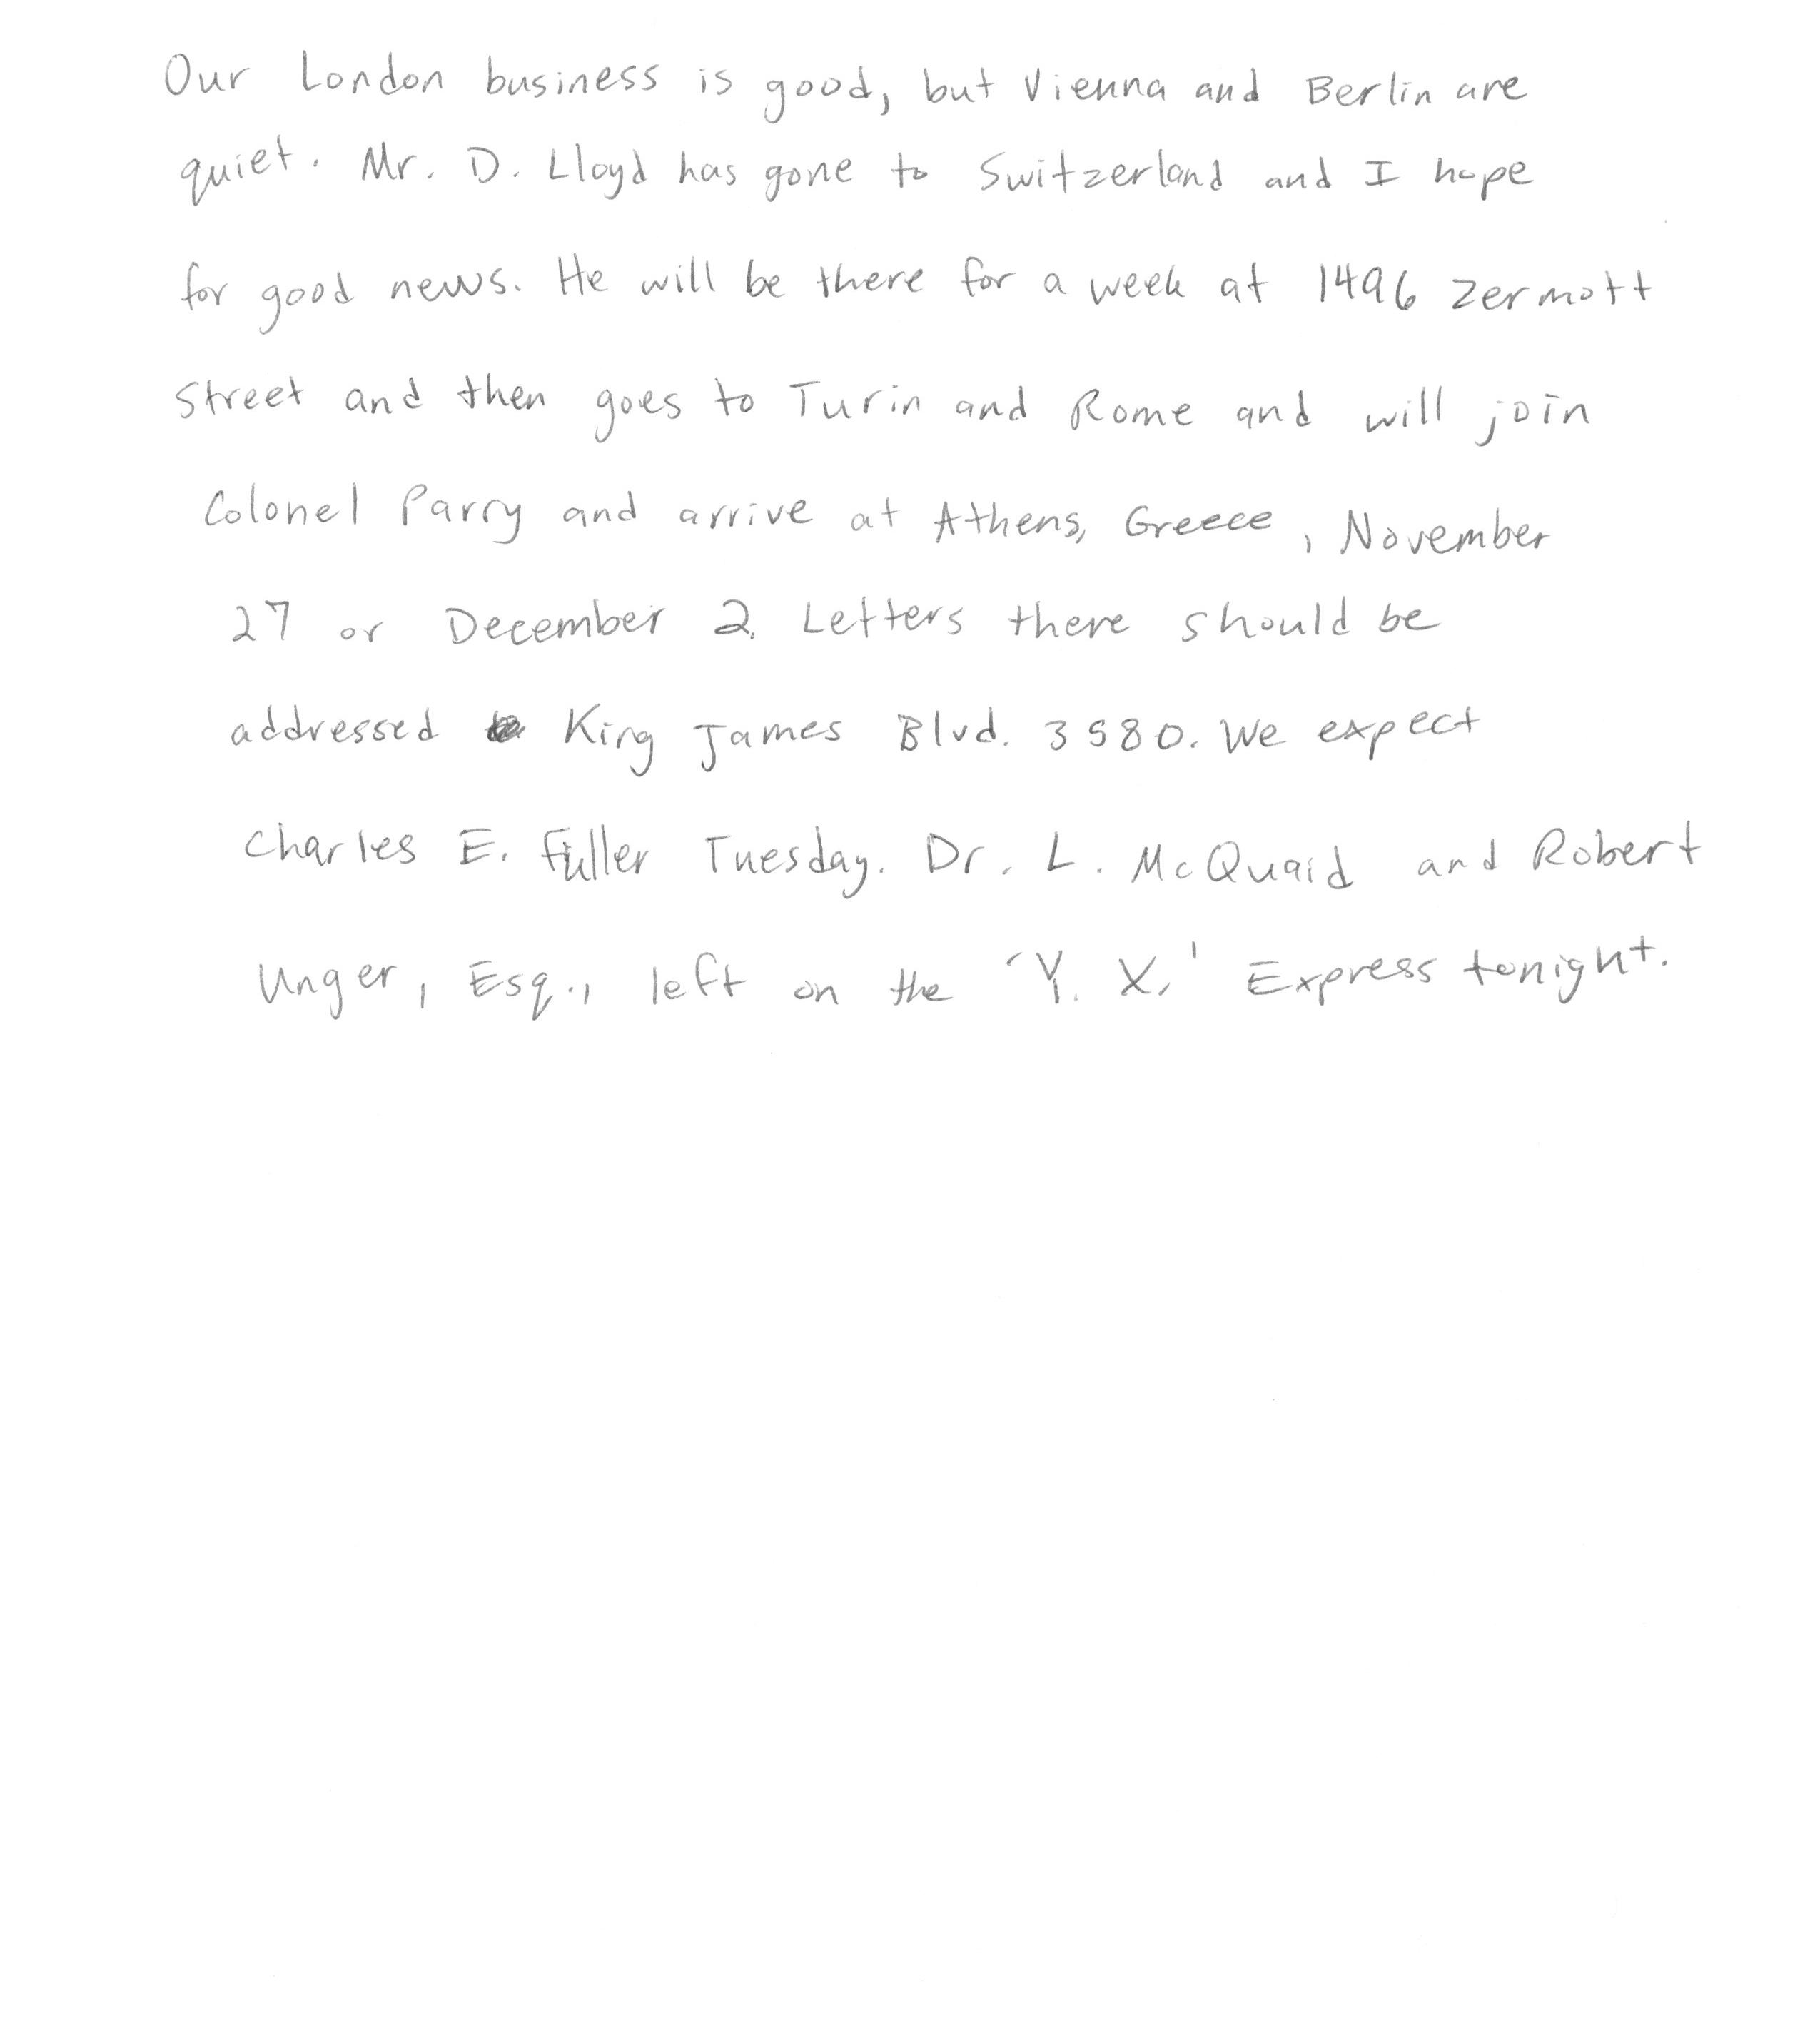 Our London business is good, but Vienna and Berlin are
quiet. Mr. D. Lloyd has gone to Switzerland and I hope
for good news. He will be there for a week at 1496 Zermott
Street and then goes to Turin and Rome and will join
Colonel Parry and arrive at Athens, Greece, November
27 or December 2. Letters there should be
addressed King James Blvd. 3580. We expect
Charles E. Fuller Tuesday. Dr. L. McQuaid and Robert
Unger, Esq., left on the 'Y. X.' Express tonight.